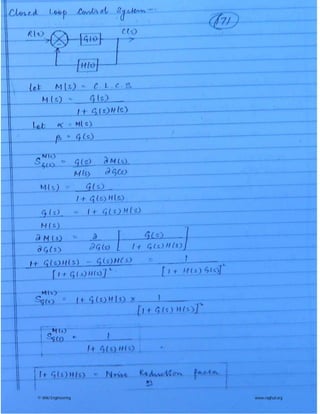 Closed Loop Control System -
71
R(s)
C(s)
G(s)
H(s)
let M(s) = C. L. C. S
M(s) = G(s)
1 + G(s)H(s)
let α = M(s)
β = G(s)
S M(s) G(s) = G(s) ∂M(s)
M(s) ∂G(s)
M(s) = G(s)
1 + G(s)H(s)
G(s) = 1 + G(s)H(s)
M(s)
∂M(s) = ∂ [ G(s) ]
∂G(s) ∂G(s) 1 + G(s)H(s)
1 + G(s)H(s) - G(s)H(s) = 1
[1 + G(s)H(s)]² [1 + H(s)G(s)]²
S M(s) G(s) = 1 + G(s)H(s) × 1
[1 + G(s)H(s)]²
S M(s) G(s) = 1
1 + G(s)H(s)
1 + G(s)H(s) = Noise Reduction factor
www.raghul.org